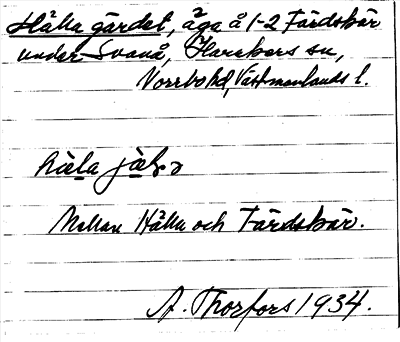 Hälla gärdet, äga å 1-2 Färdskär
under Svanå, Harakers sn,
Norrbo hd, Västmanlands l.
Mellan Hälla och Färdskär.
A. Thorfors 1934.